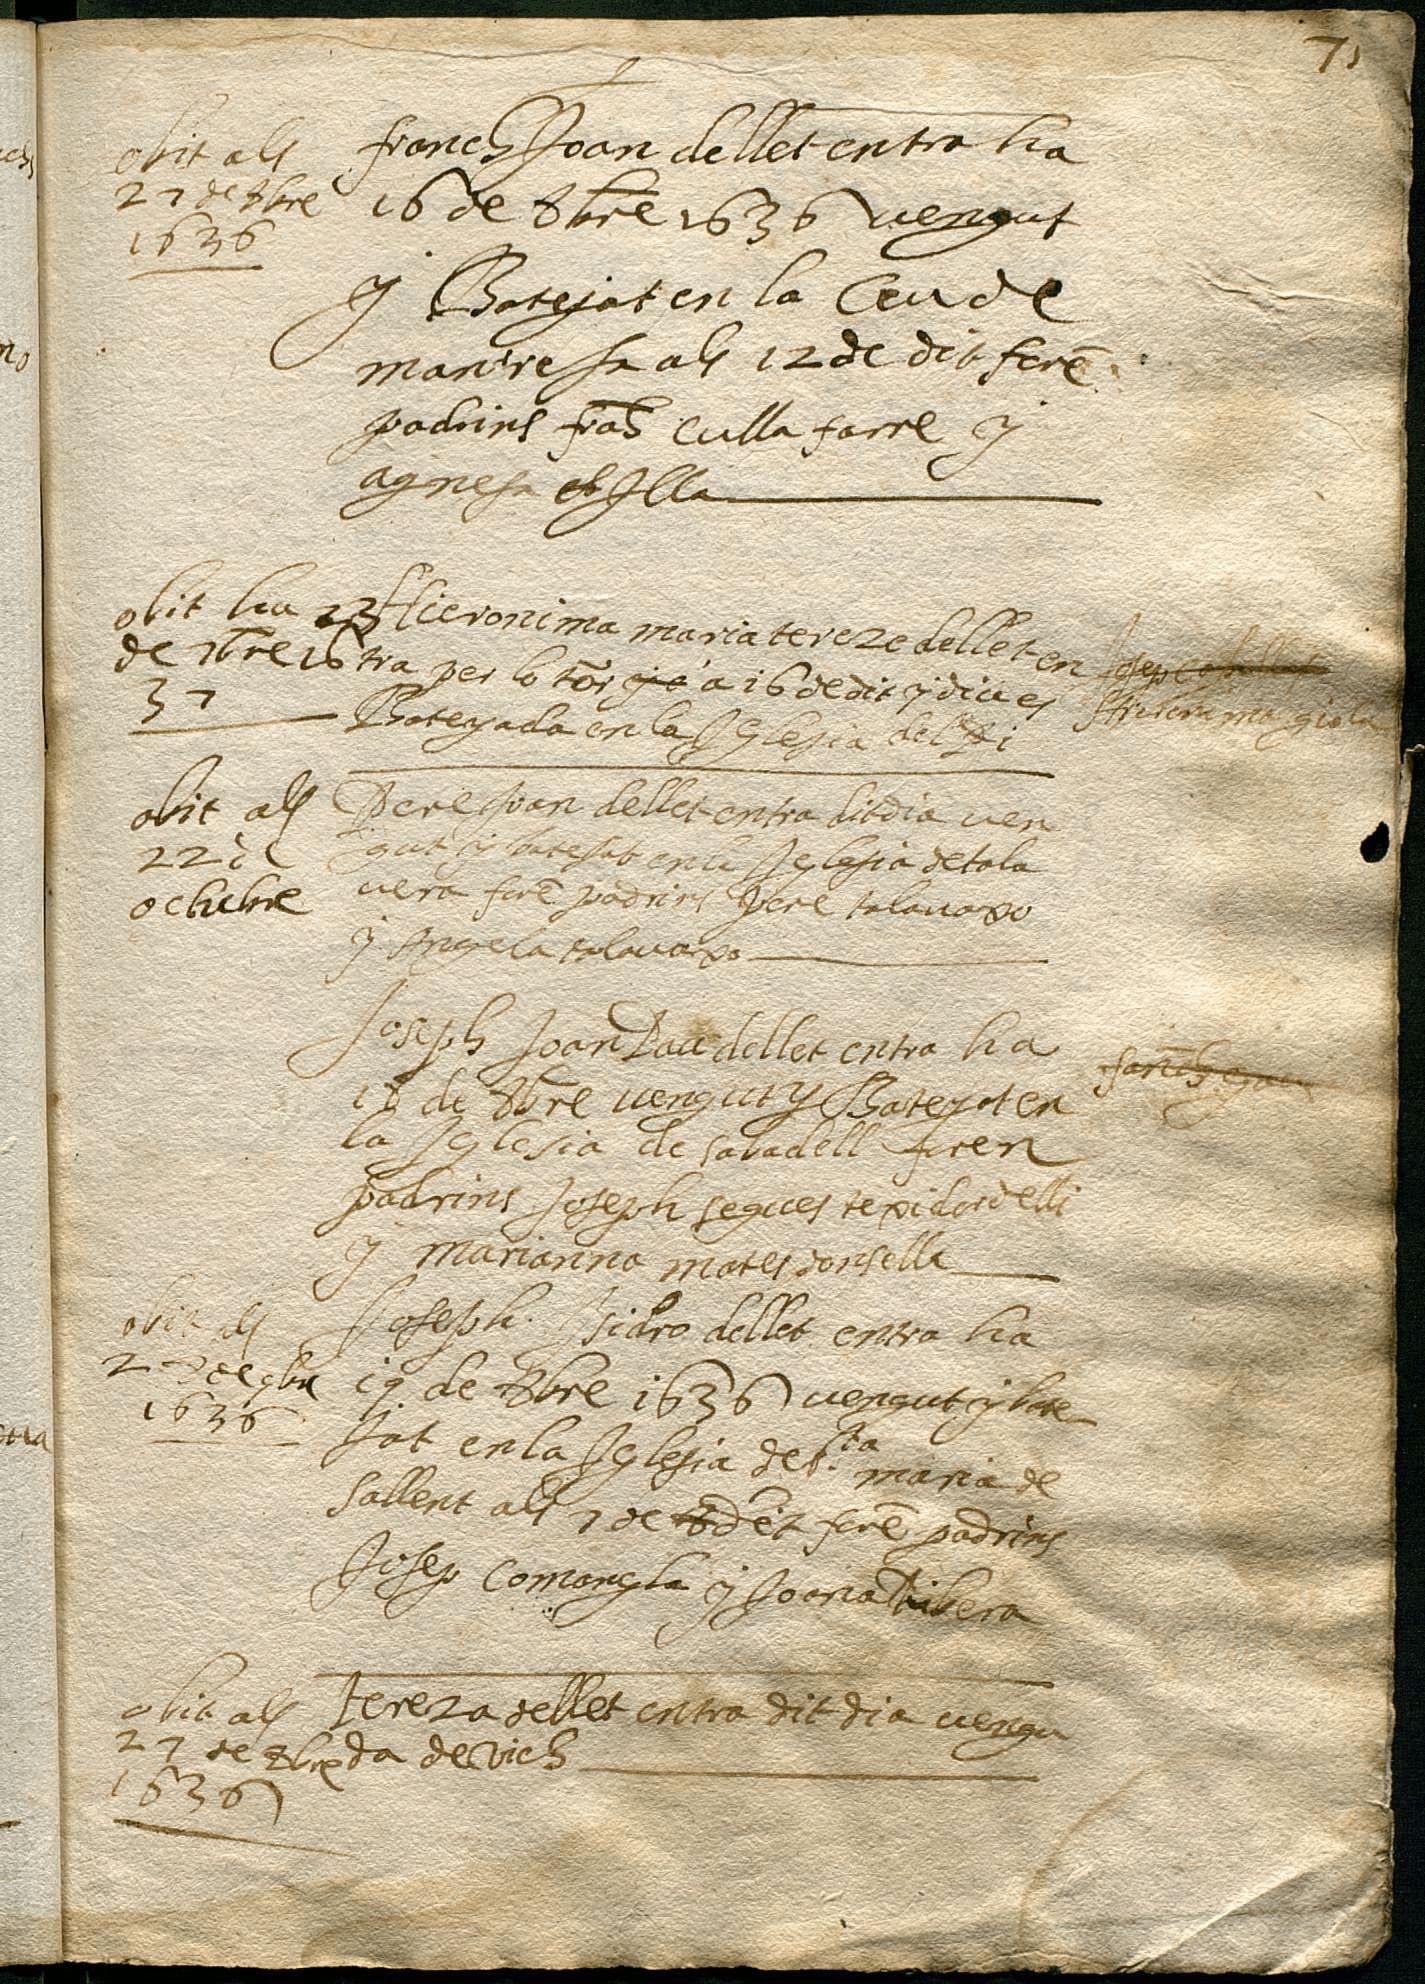 71
obit als
27 de 8bre
1636
franch Joan de llet entra ha
16 de 8bre 1636 vengut
y Batejat en la Ceu de
manrresa als 12 de dit foré
padrins frãch culla farre y
agnesa Illa
obit ha 23
de 7bre 16
37
Hieronima maria tereze de llet en
tra per lo torn a 16 de dit y diu es
Bateyada en la Iglesia del Pi
Josep
Hieronima giola
obit als
22 de
octubre
Pere Joan de llet entra dit dia ven
gut y batejat en la Iglesia de tala
vera foré padrins Pere talavaro
y Angela talavaro
Joseph Joan Pau de llet entra ha
18 de 8bre vengut y Bateyat en
la Iglesia de sabadell foren
padrins Joseph segues texidor de lli
y marianna mates donsella
obit als
27 de 9bre
1636
Joseph Isidro de llet entra ha
19 de 8bre 1636 vengut y bate
jat en la Iglesia de S.ta maria de
sallent als 7 de dit foré padrins
Josep Comangla y Joana Ribera
obit als
27 de 8bre
1636
Tereza de llet entra dit dia vengu
da de Vich